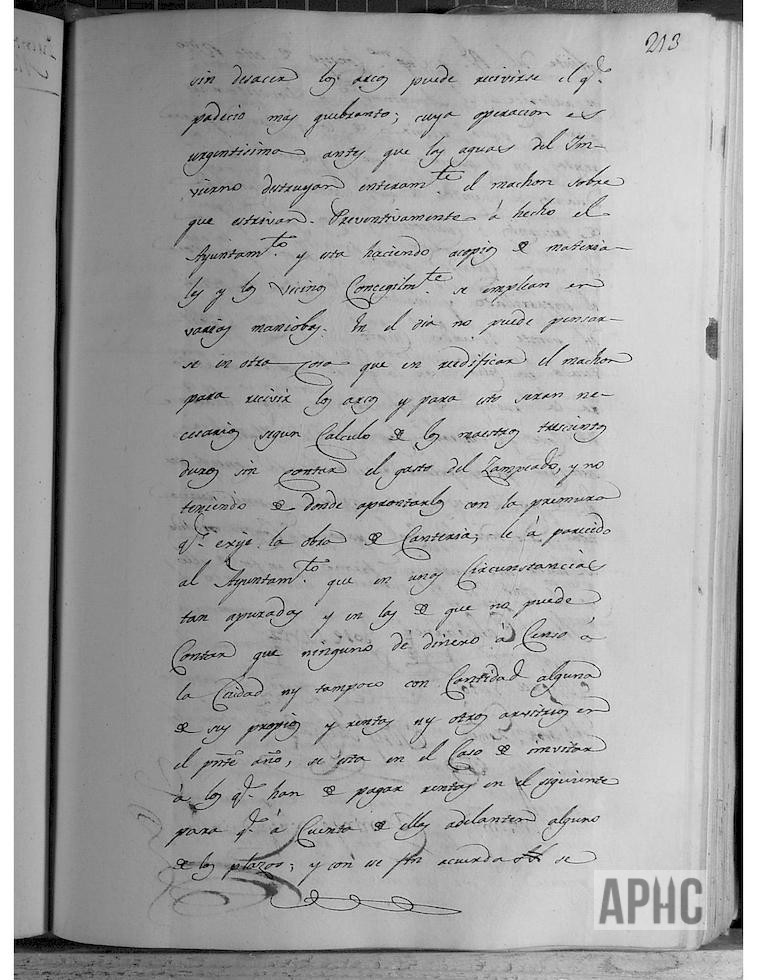 213
sin desacer los arcos puede recivirse el q.ᵉ
padecio mas quebranto; cuya operacion es
urgentisima antes que las aguas del Im-
vierno destruyan enteram.te el machon sobre
que estrivan. Preventivamente á hecho el
Ayuntam.to y esta haciendo acopios de materia-
les y los Vecinos Concegilm.te se emplean en
varias maniobras. En el dia no puede pensar-
se en otra cosa que en redificar el machon
para recivir los arcos y para esto seran ne-
cesarios segun Calculo de los maestros trescientos
duros sin contar el gasto del Zampeado, y no
teniendo de donde aprontarlos con la premura
q.ᵉ exije la obra de Canteria; le á parecido
al Ayuntam.to que en unas Circunstancias
tan apuradas y en las de que no puede
Contar que ninguno dé dinero á Censo á
la Ciudad ny tampoco con Cantidad alguna
de sus propios y rentas ny otros arvitrios en
el pnte año, se esta en el Caso de invitar
á los q.ᵉ han de pagar rentas en el siguiente
para q.ᵉ á Cuenta de ellas adelanten alguno
de los plazos; y con ese fin acuerda se
APHC